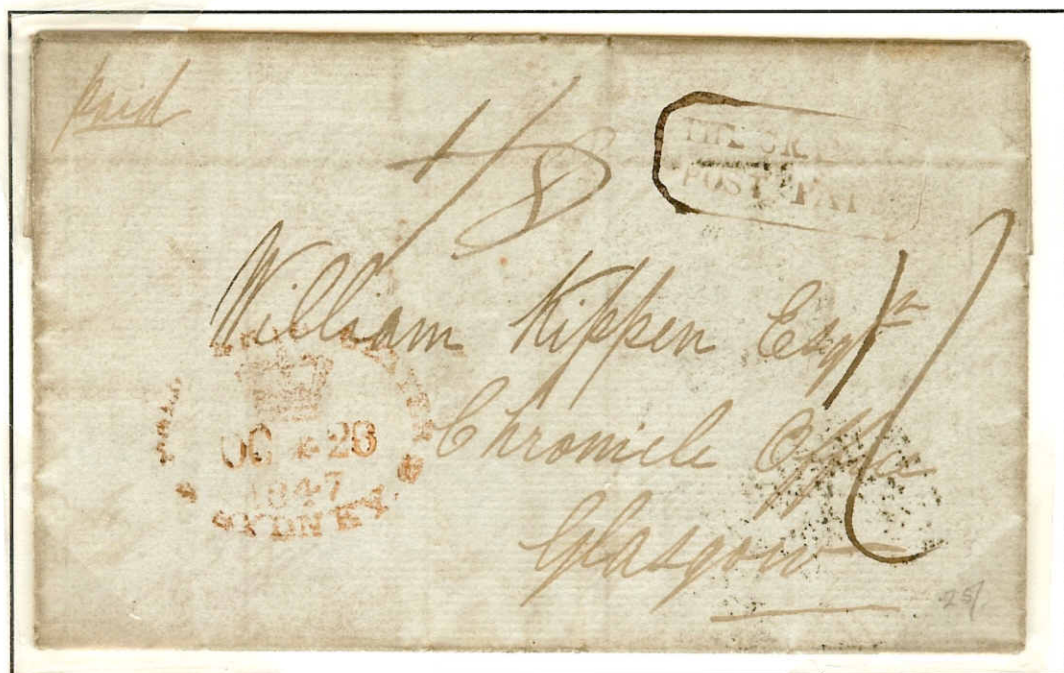 Paid
1/8
POST
William Kippen Esqr
Chronicle Office
Glasgow
OC 28
1847
SYDNEY
25/